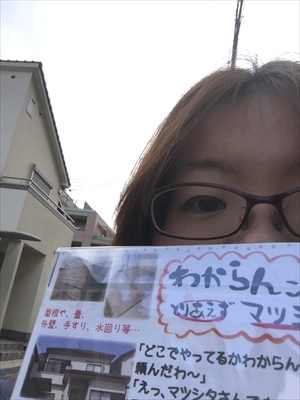 わからんこ
とりあえず マツシ
屋根や、畳、
外壁、手すり、水回り等…
「どこでやってるかわからん
頼んだわ〜」
「えっ、マツシタさんで